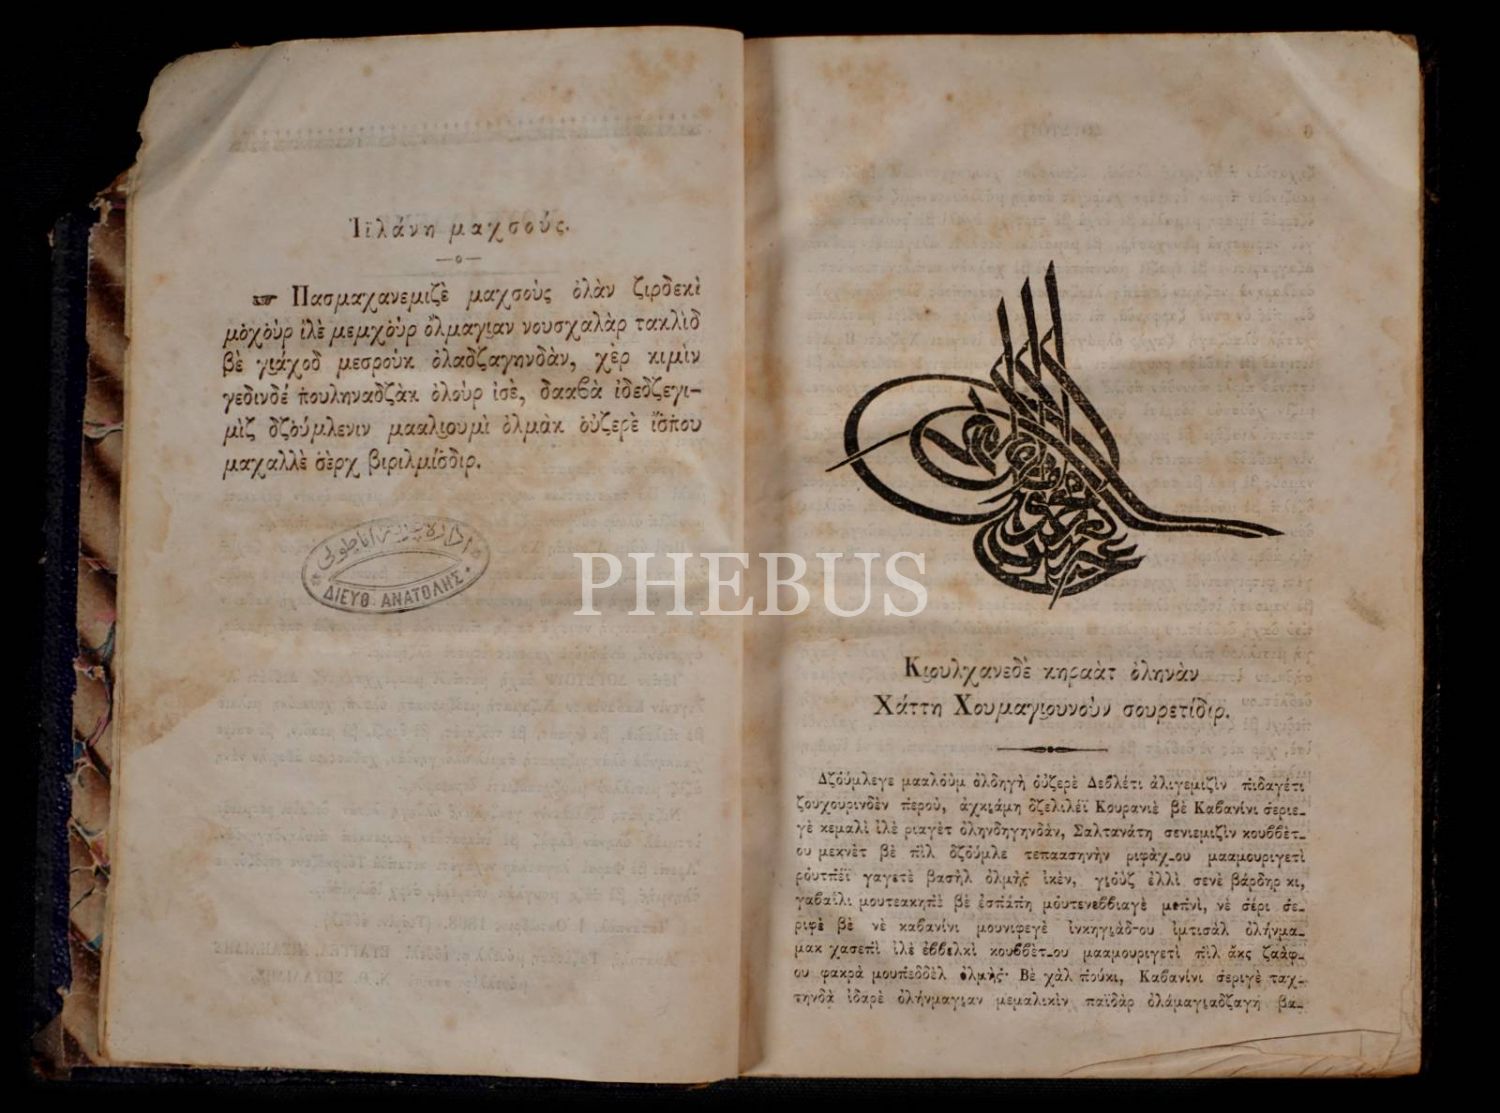 Ἰϊλάνη μαχσούς.
Πασμαχανεμιζὲ μαχσοὺς ὀλὰν ζιρδεκὶ
μὀχοὺρ ἰλὲ μεμχοὺρ ὄλμαγιαν νουσχαλὰρ τακλὶδ
βὲ γιάχοδ μεσρούκ ὀλαδζαγηνδὰν, χὲρ κιμὶν
γεδινδέ πουληναδζὰκ ὀλοὺρ ἰσὲ, δααβὰ ἰδεδζεγι-
μὶζ δζούμλενιν μααλιουμὶ ὀλμὰκ οὐζερὲ ἴσπου
μαχαλλὲ σὲρχ βιριλμίσδιρ.
ΔΙΕΥΘ. ΑΝΑΤΟΛΗΣ
PHEBUS
Κιουλχανεδὲ κηραὰτ ὀληνὰν
Χάττη Χουμαγιουνοὺν σουρετίδιρ.
Δζούμλεγε μααλοὺμ ὀλδηγὴ οὐζερὲ Δεβλέτι ἀλιγεμιζὶν πιδαγέτι
ζουχουρινδὲν περοὺ, ἀχκιάμη δζελιλέϊ Κουρανιὲ βὲ Καβανίνι σεριε-
γὲ κεμαλὶ ἰλὲ ριαγὲτ ὀληνδηγηνδὰν, Σαλτανάτη σενιεμιζὶν κουββὲτ-
ου μεκνὲτ βὲ πὶλ δζοὺμλε τεπαασηνὴν ριφὰχ-ου μααμουριγετὶ
ρούτπέϊ γαγετὲ βασὴλ ὀλμὴς ἰκὲν, γιοὺζ ἐλλὶ σενὲ βάρδηρ κι,
γαβαϊλι μουτεακηπὲ βὲ ἐσπάπη μουτενεββιαγὲ μεπνὶ, νὲ σέρι σε-
ριφὲ βὲ νὲ καβανίνι μουνιφεγὲ ἰνκηγιάδ-ου ἰμτισὰλ ὀλήνμα-
μακ χασεπὶ ἰλὲ ἐββελκὶ κουββὲτ-ου μααμουριγετὶ πὶλ ἀκς ζαάφ-
ου φακρὰ μουπεδδὲλ ὀλμής· Βὲ χὰλ πούκι, Καβανίνι σεριγὲ ταχ-
τηνδὰ ἰδαρὲ ὀλήνμαγιαν μεμαλικὶν παϊδὰρ ὀλάμαγιαδζαγὴ βα-